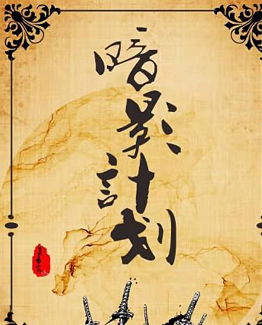 暗影計划